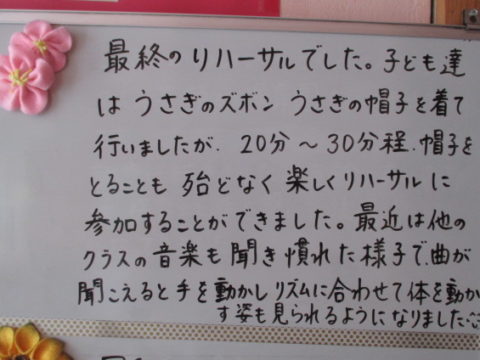 最終のリハーサルでした。子ども達
は うさぎのズボン うさぎの帽子を着て
行いましたが、20分～30分程、帽子を
とることも 殆どなく 楽しくリハーサルに
参加することができました。最近は他の
クラスの音楽も聞き慣れた様子で、曲が
聞こえると手を動かしリズムに合わせて体を動か
す姿も見られるようになりました